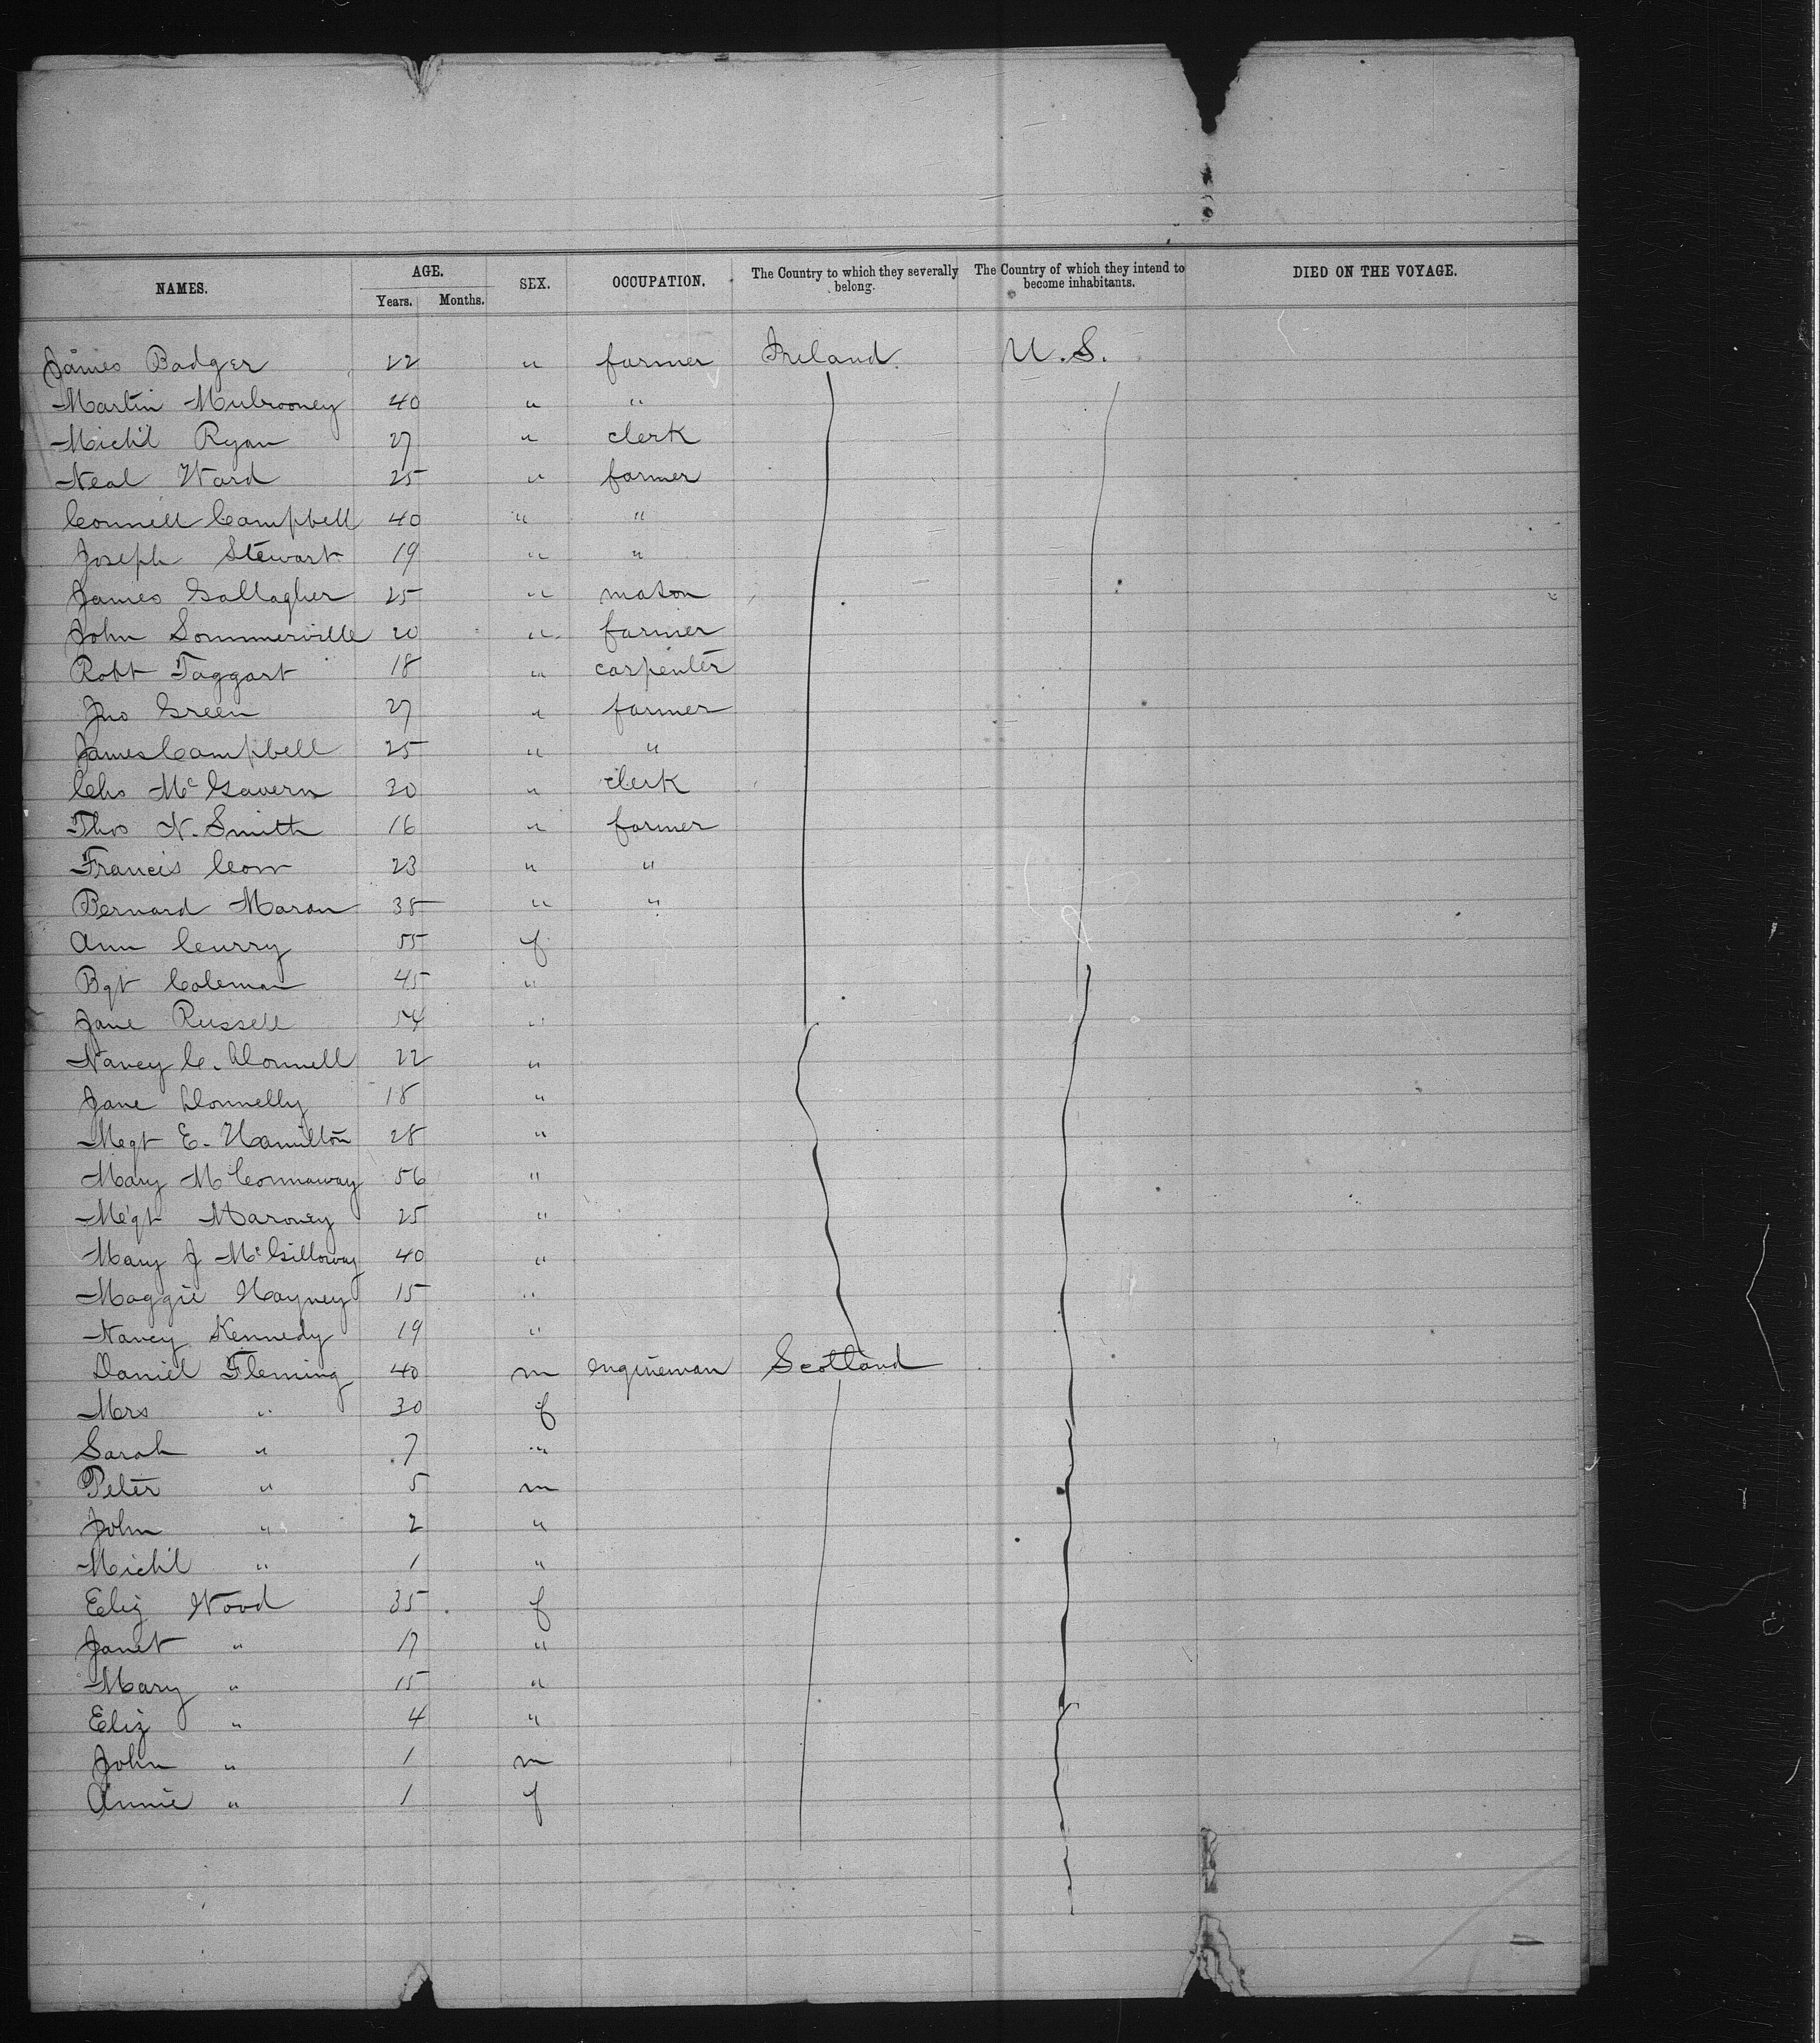 NAMES. AGE. SEX. OCCUPATION. The Country to which they severally belong. The Country of which they intend to become inhabitants. DIED ON THE VOYAGE.
Years. Months.
James Badger 22 " farmer Ireland U.S.
Martin Mulrooney 40 " "
Mich'l Ryan 27 " clerk
Neal Ward 25 " farmer
Connell Campbell 40 " "
Joseph Stewart 19 " "
James Gallagher 25 " mason
John Sommerville 20 " farmer
Robt Taggart 18 " carpenter
Jno Green 27 " farmer
James Campbell 25 " "
Chs McGavern 20 " clerk
Thos N. Smith 16 " farmer
Francis 23 " "
Bernard Maron 35 " "
Ann Curry 55 f
Bgt Coleman 45 "
Jane Russell 54 "
Nancy C. Donnell 22 "
Jane Donnelly 18 "
Megt E. Hamilton 28 "
Mary McConnaway 56 "
Megt Maroney 25 "
Mary J McGilloway 40 "
Maggie Hayney 15 "
Nancy Kennedy 19 "
Daniel Fleming 40 m engineman Scotland
Mrs " 30 f
Sarah " 7 "
Peter " 5 m
John " 2 "
Mich'l " 1 "
Eliz Wood 35 f
Janet " 17 "
Mary " 15 "
Eliz " 4 "
John " 1 m
Annie " 1 f